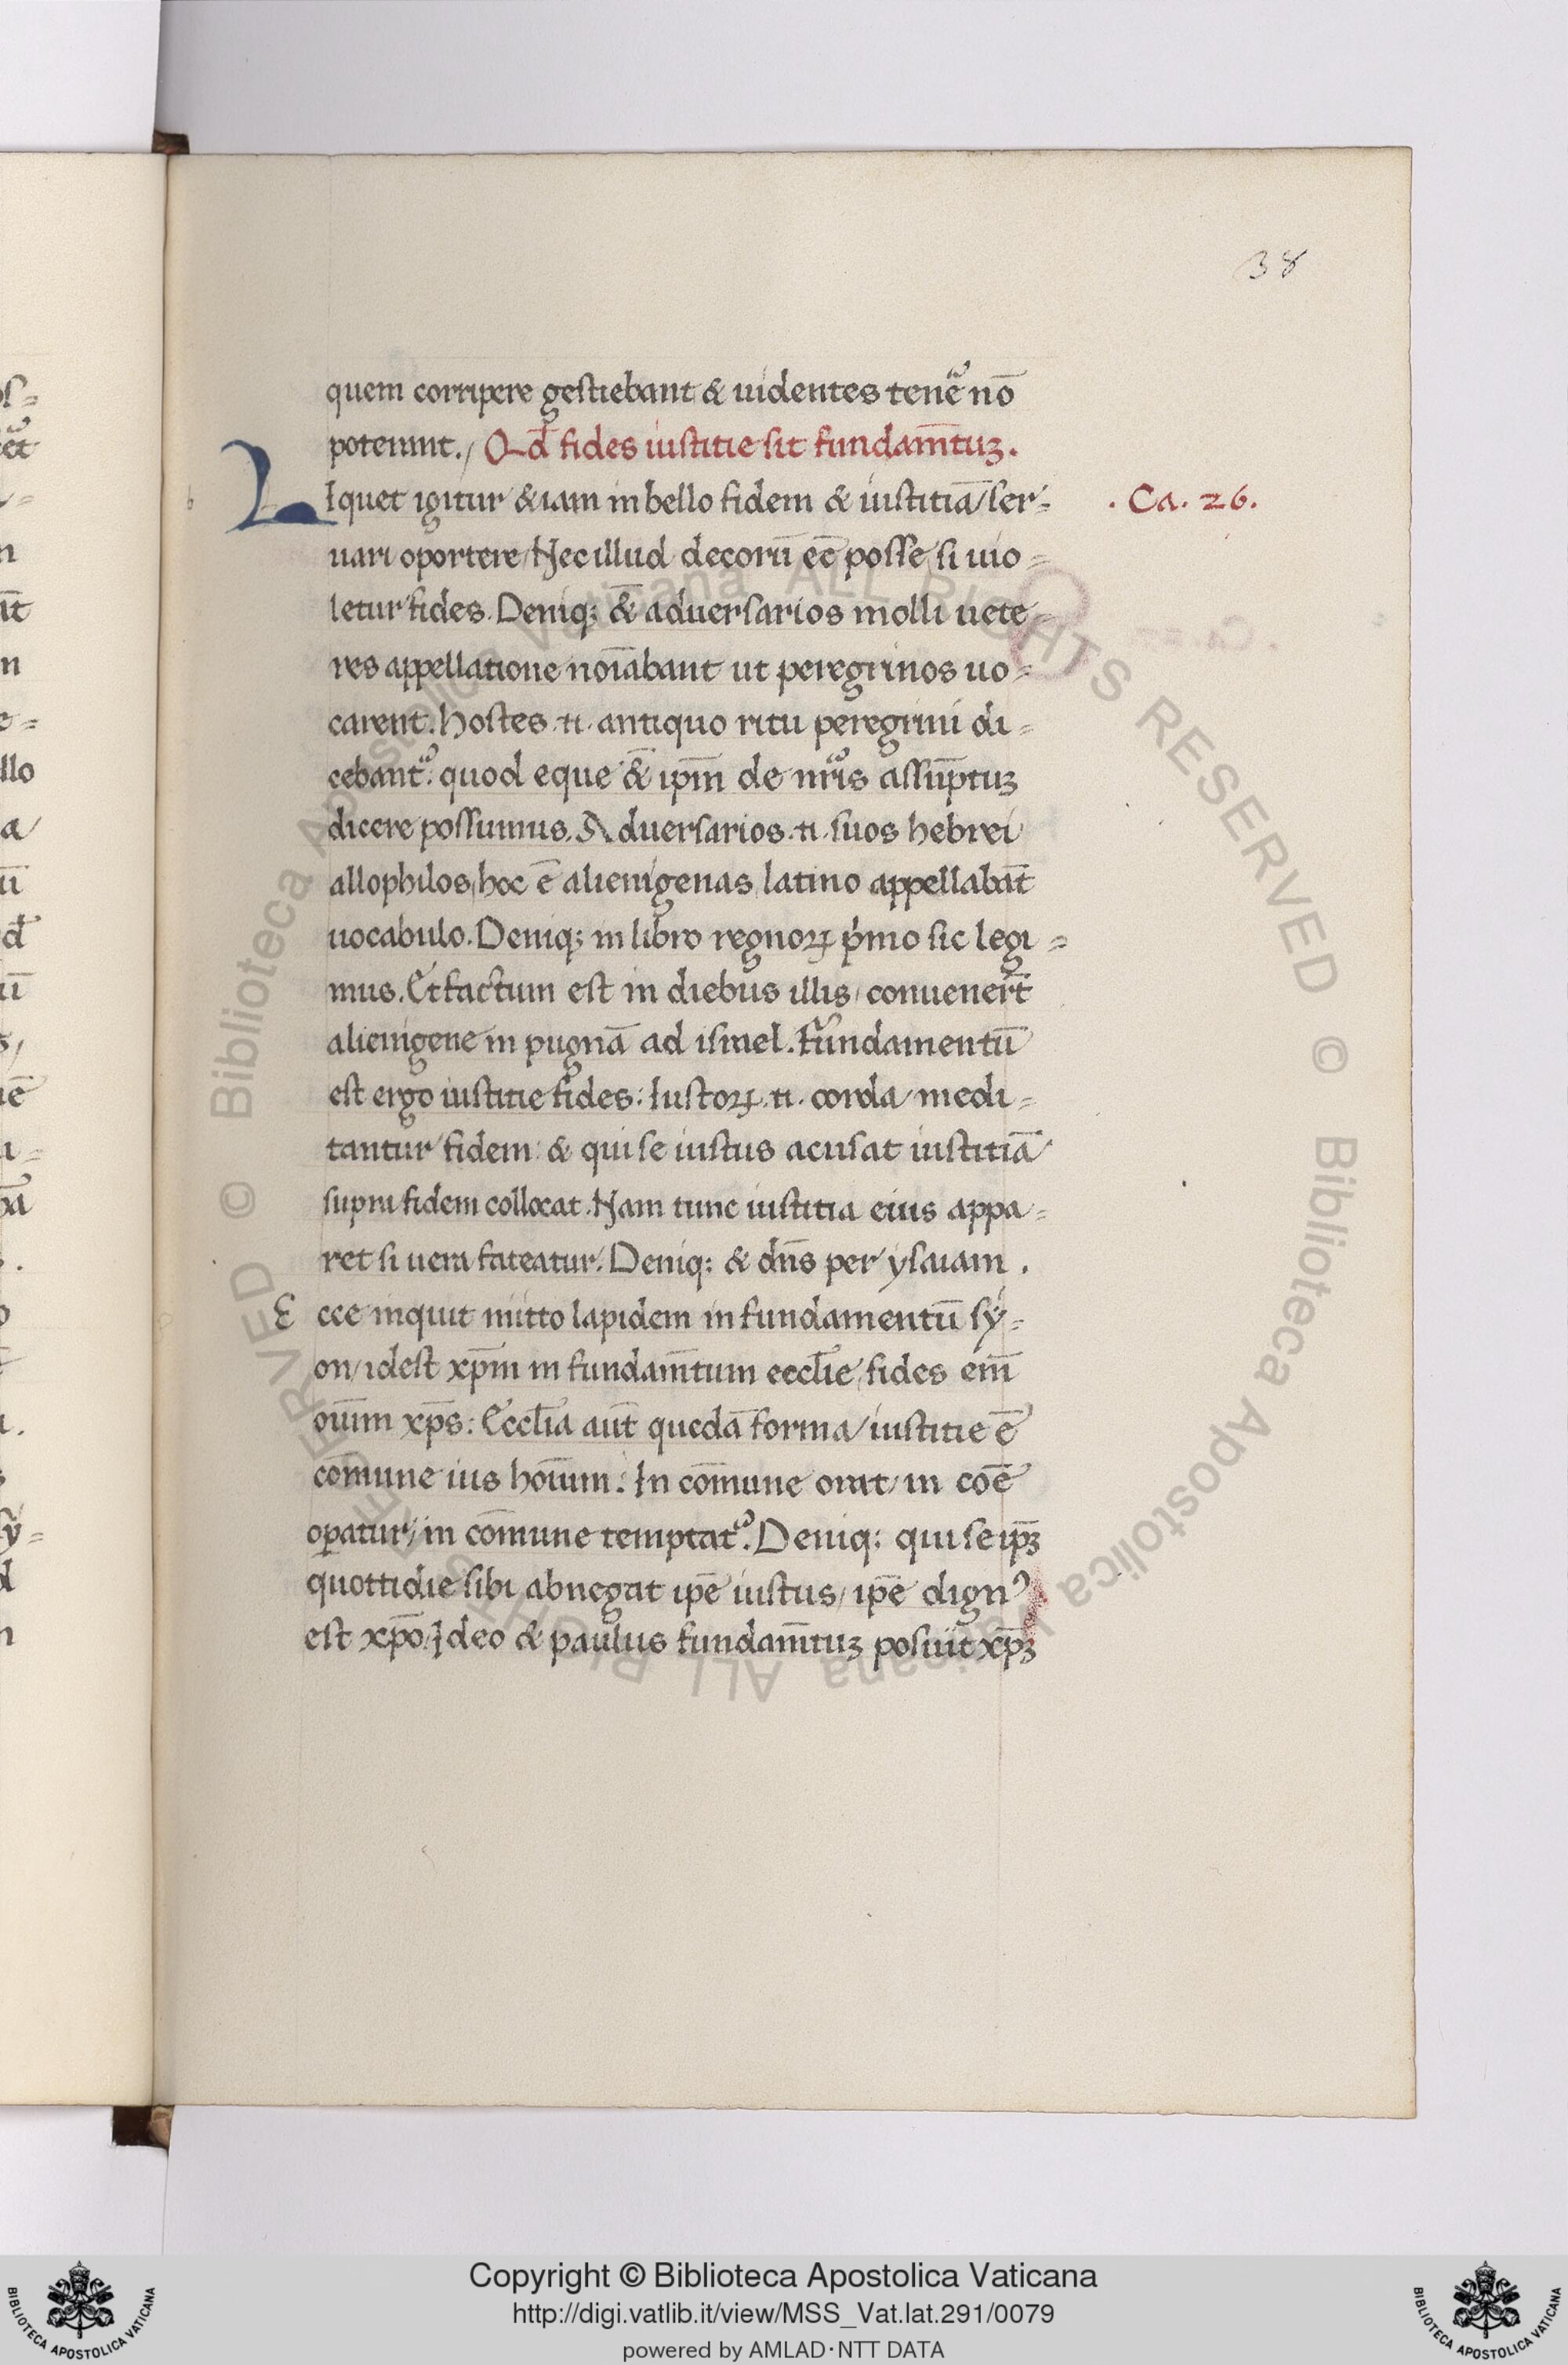 38
quem corripere gestiebant & uidentes tenẽ nõ
poterunt. Qđ fides iustitie sit fundam̃tuꝫ.
LIquet igitur & iam in bello fidem & iustitiã ser=
. Ca. 26.
uari oportere Nec illud decorũ eẽ posse si uio=
letur fides. Deniqꝫ & aduersarios molli uete=
res appellatione noĩabant ut peregrinos uo=
carent. hostes .n. antiquo ritu peregrini di=
cebant᷑: quod eque & ip̃m de nr̃is assũptuꝫ
dicere possumus. Aduersarios .n. suos hebrei
allophilos, hoc ẽ alienigenas latino appellabãt
uocabulo. Deniqꝫ in libro regnoꝝ p̃mo sic legi=
mus. Et factum est in diebus illis, conuener̃t
alienigene in pugnã ad israel. Fundamentũ
est ergo iustitie fides: Iustoꝝ .n. corda medi=
tantur fidem: & qui se iustus acusat iustitiã
supra fidem collocat. Nam tunc iustitia eius appa=
ret si uera fateatur. Deniqꝫ & dñs per ysaiam.
Ecce inquit mitto lapidem in fundamentũ sy=
on, idest xp̃m in fundam̃tum eccl̃ie, fides em̃
oium̃ xp̃s: Eccl̃ia aut̃ quedã forma iustitie ẽ
com̃une ius hoĩum: In com̃une orat, in coẽ
oꝑatur, in com̃une temptat᷑. Deniqꝫ qui se ip̃ꝫ
quottidie sibi abnegat ip̃e iustus, ip̃e dignꝰ
est xp̃o. Ideo & paulus fundam̃tuꝫ posuit xp̃ꝫ
Copyright © Biblioteca Apostolica Vaticana
http://digi.vatlib.it/view/MSS_Vat.lat.291/0079
powered by AMLAD·NTT DATA